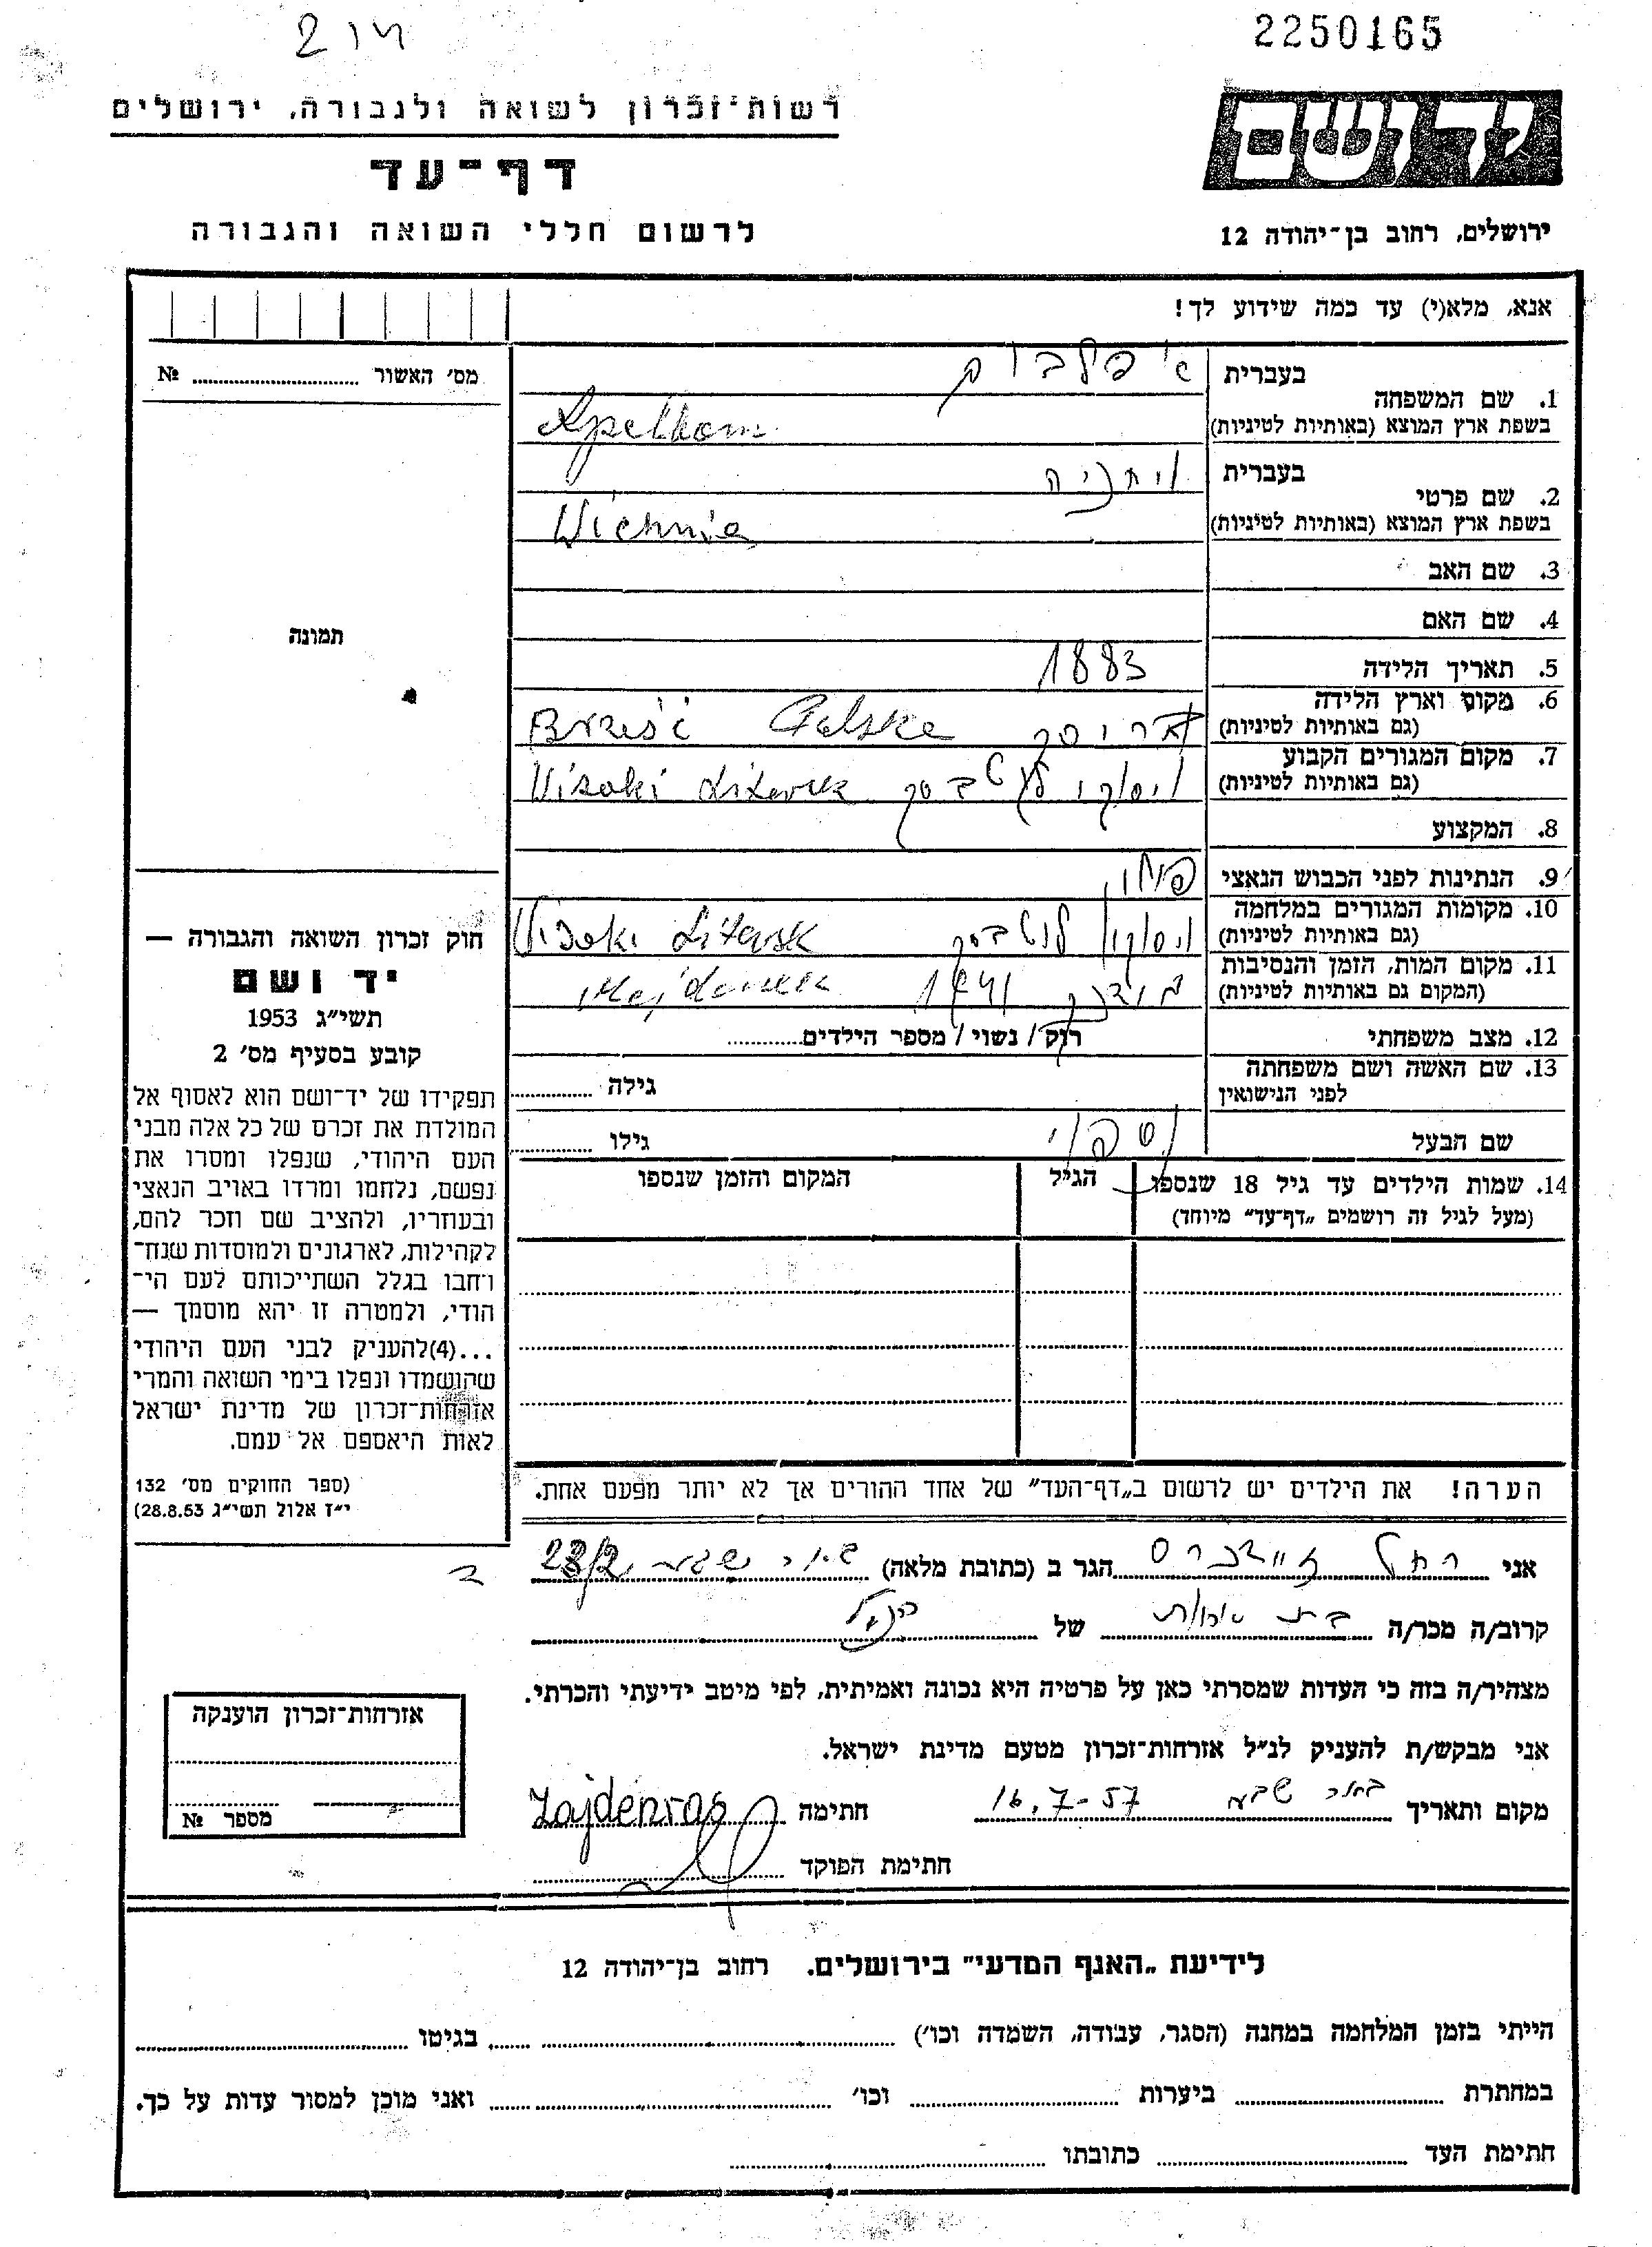 2250165
רשות־זכרון לשואה ולגבורה, ירושלים
יד ושם
דף־עד
לרשום חללי השואה והגבורה
ירושלים, רחוב בן־יהודה 12
אנא, מלא(י) עד כמה שידוע לך!
מס׳ האשור № ........
בעברית
1. שם המשפחה
בשפת ארץ המוצא (באותיות לטיניות)
בעברית ויחניה
2. שם פרטי
בשפת ארץ המוצא (באותיות לטיניות) Wichnia
3. שם האב
4. שם האם
תמונה
5. תאריך הלידה 1883
6. מקום וארץ הלידה
(גם באותיות לטיניות) בריסק Brześć Polska
7. מקום המגורים הקבוע
(גם באותיות לטיניות) Wisoki Litewsk
8. המקצוע
9. הנתינות לפני הכבוש הנאצי
10. מקומות המגורים במלחמה
(גם באותיות לטיניות) Wisoki Litewsk
11. מקום המות, הזמן והנסיבות
(המקום גם באותיות לטיניות) מידנק 1941 Majdanek
12. מצב משפחתי רוק / נשוי / מספר הילדים........
13. שם האשה ושם משפחתה
לפני הנישואין גילה ........
שם הבעל גילו ........
14. שמות הילדים עד גיל 18 שנספו הגיל המקום והזמן שנספו
(מעל לגיל זה רושמים „דף־עד" מיוחד)
חוק זכרון השואה והגבורה —
יד ושם
תשי״ג 1953
קובע בסעיף מס׳ 2
תפקידו של יד־ושם הוא לאסוף אל
המולדת את זכרם של כל אלה מבני
העם היהודי, שנפלו ומסרו את
נפשם, נלחמו ומרדו באויב הנאצי
ובעוזריו, ולהציב שם וזכר להם,
לקהילות, לארגונים ולמוסדות שנח־
רחבו בגלל השתייכותם לעם הי־
הודי, ולמטרה זו יהא מוסמך —
...(4)להעניק לבני העם היהודי
שהושמדו ונפלו בימי השואה והמרי
אזרחות־זכרון של מדינת ישראל
לאות היאספם אל עמם.
(ספר החוקים מס׳ 132
י״ז אלול תשי״ג 28.8.53)
הערה! את הילדים יש לרשום ב„דף־העד" של אחד ההורים אך לא יותר מפעם אחת.
אני רחל זיידנרס הגר ב (כתובת מלאה) באר שבע 23/2
קרוב/ה מכר/ה בת אחות של הנ״ל
מצהיר/ה בזה כי העדות שמסרתי כאן על פרטיה היא נכונה ואמיתית, לפי מיטב ידיעתי והכרתי.
אני מבקש/ת להעניק לנ״ל אזרחות־זכרון מטעם מדינת ישראל.
מקום ותאריך באר שבע 16.7-57 חתימה Zajdenras
חתימת הפוקד
אזרחות־זכרון הוענקה
מספר №
לידיעת „האגף המדעי" בירושלים. רחוב בן־יהודה 12
הייתי בזמן המלחמה במחנה (הסגר, עבודה, השמדה וכו׳) ........ בגיטו ........
במחתרת ........ ביערות ........ וכו׳ ........ ואני מוכן למסור עדות על כך.
חתימת העד ........ כתובתו ........